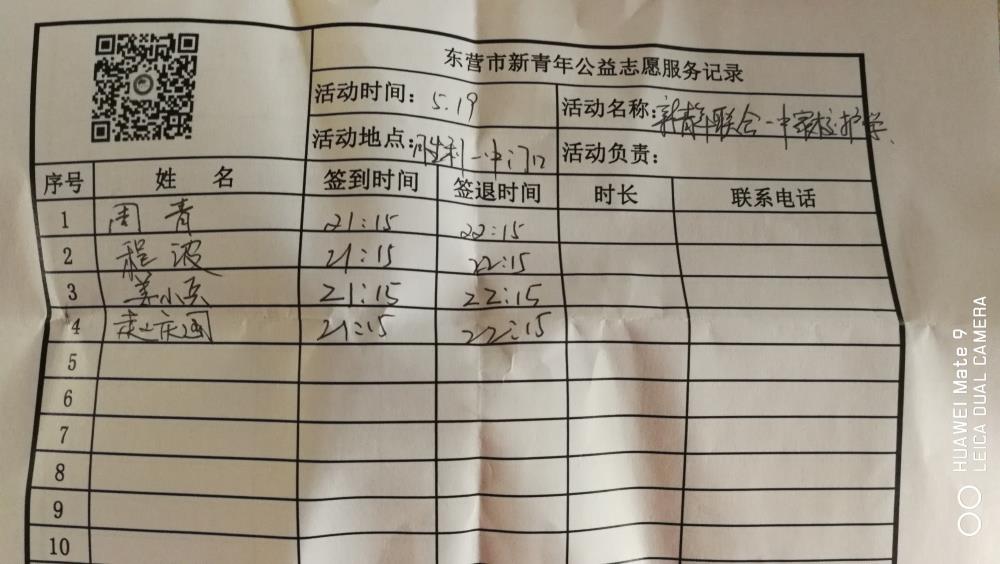 东营市新青年公益志愿服务记录
活动时间: 5.19 活动名称: 新青年联合一中家校护学
活动地点: 胜利一中门口 活动负责:
序号 姓 名 签到时间 签退时间 时长 联系电话
1 周青 21:15 22:15
2 程波 21:15 22:15
3 姜小 21:15 22:15
4 赵庆国 21:15 22:15
5
6
7
8
9
10
HUAWEI Mate 9
LEICA DUAL CAMERA